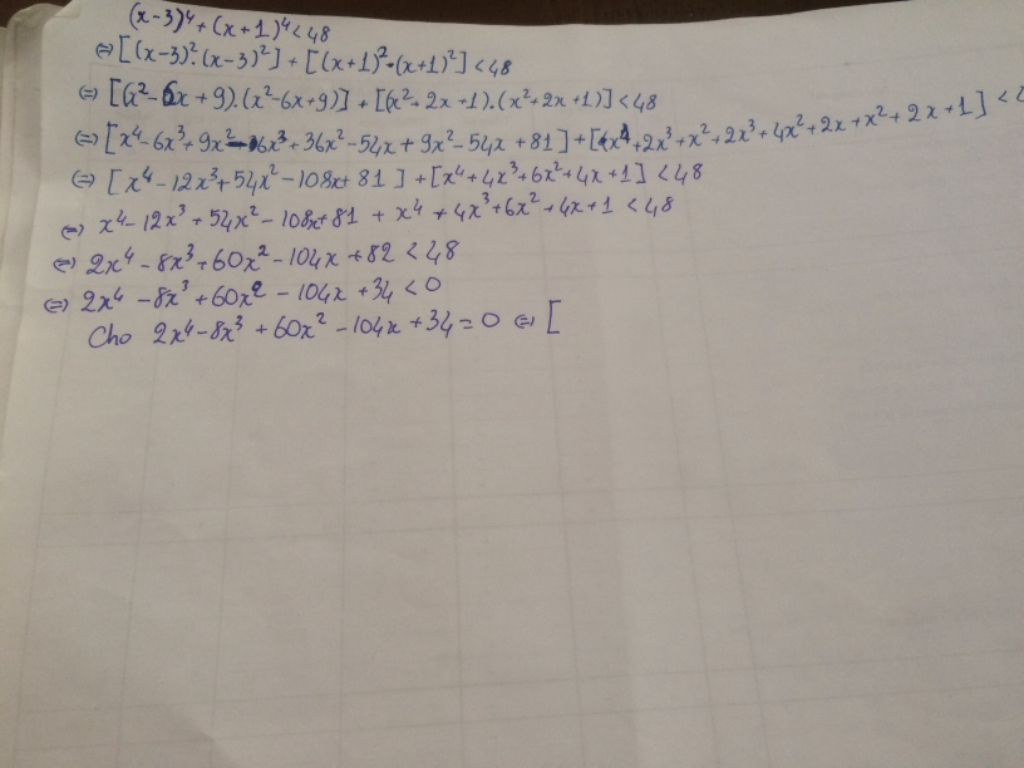 (x-3)⁴+(x+1)⁴<48
⇔[(x-3)².(x-3)²]+[(x+1)².(x+1)²]<48
⇔[(x²-6x+9).(x²-6x+9)]+[(x²+2x+1).(x²+2x+1)]<48
⇔[x⁴-6x³+9x²-6x³+36x²-54x+9x²-54x+81]+[x⁴+2x³+x²+2x³+4x²+2x+x²+2x+1]<4
⇔[x⁴-12x³+54x²-108x+81]+[x⁴+4x³+6x²+4x+1]<48
⇔ x⁴-12x³+54x²-108x+81+x⁴+4x³+6x²+4x+1<48
⇔ 2x⁴-8x³+60x²-104x+82<48
⇔ 2x⁴-8x³+60x²-104x+34<0
Cho 2x⁴-8x³+60x²-104x+34=0 ⇔ [